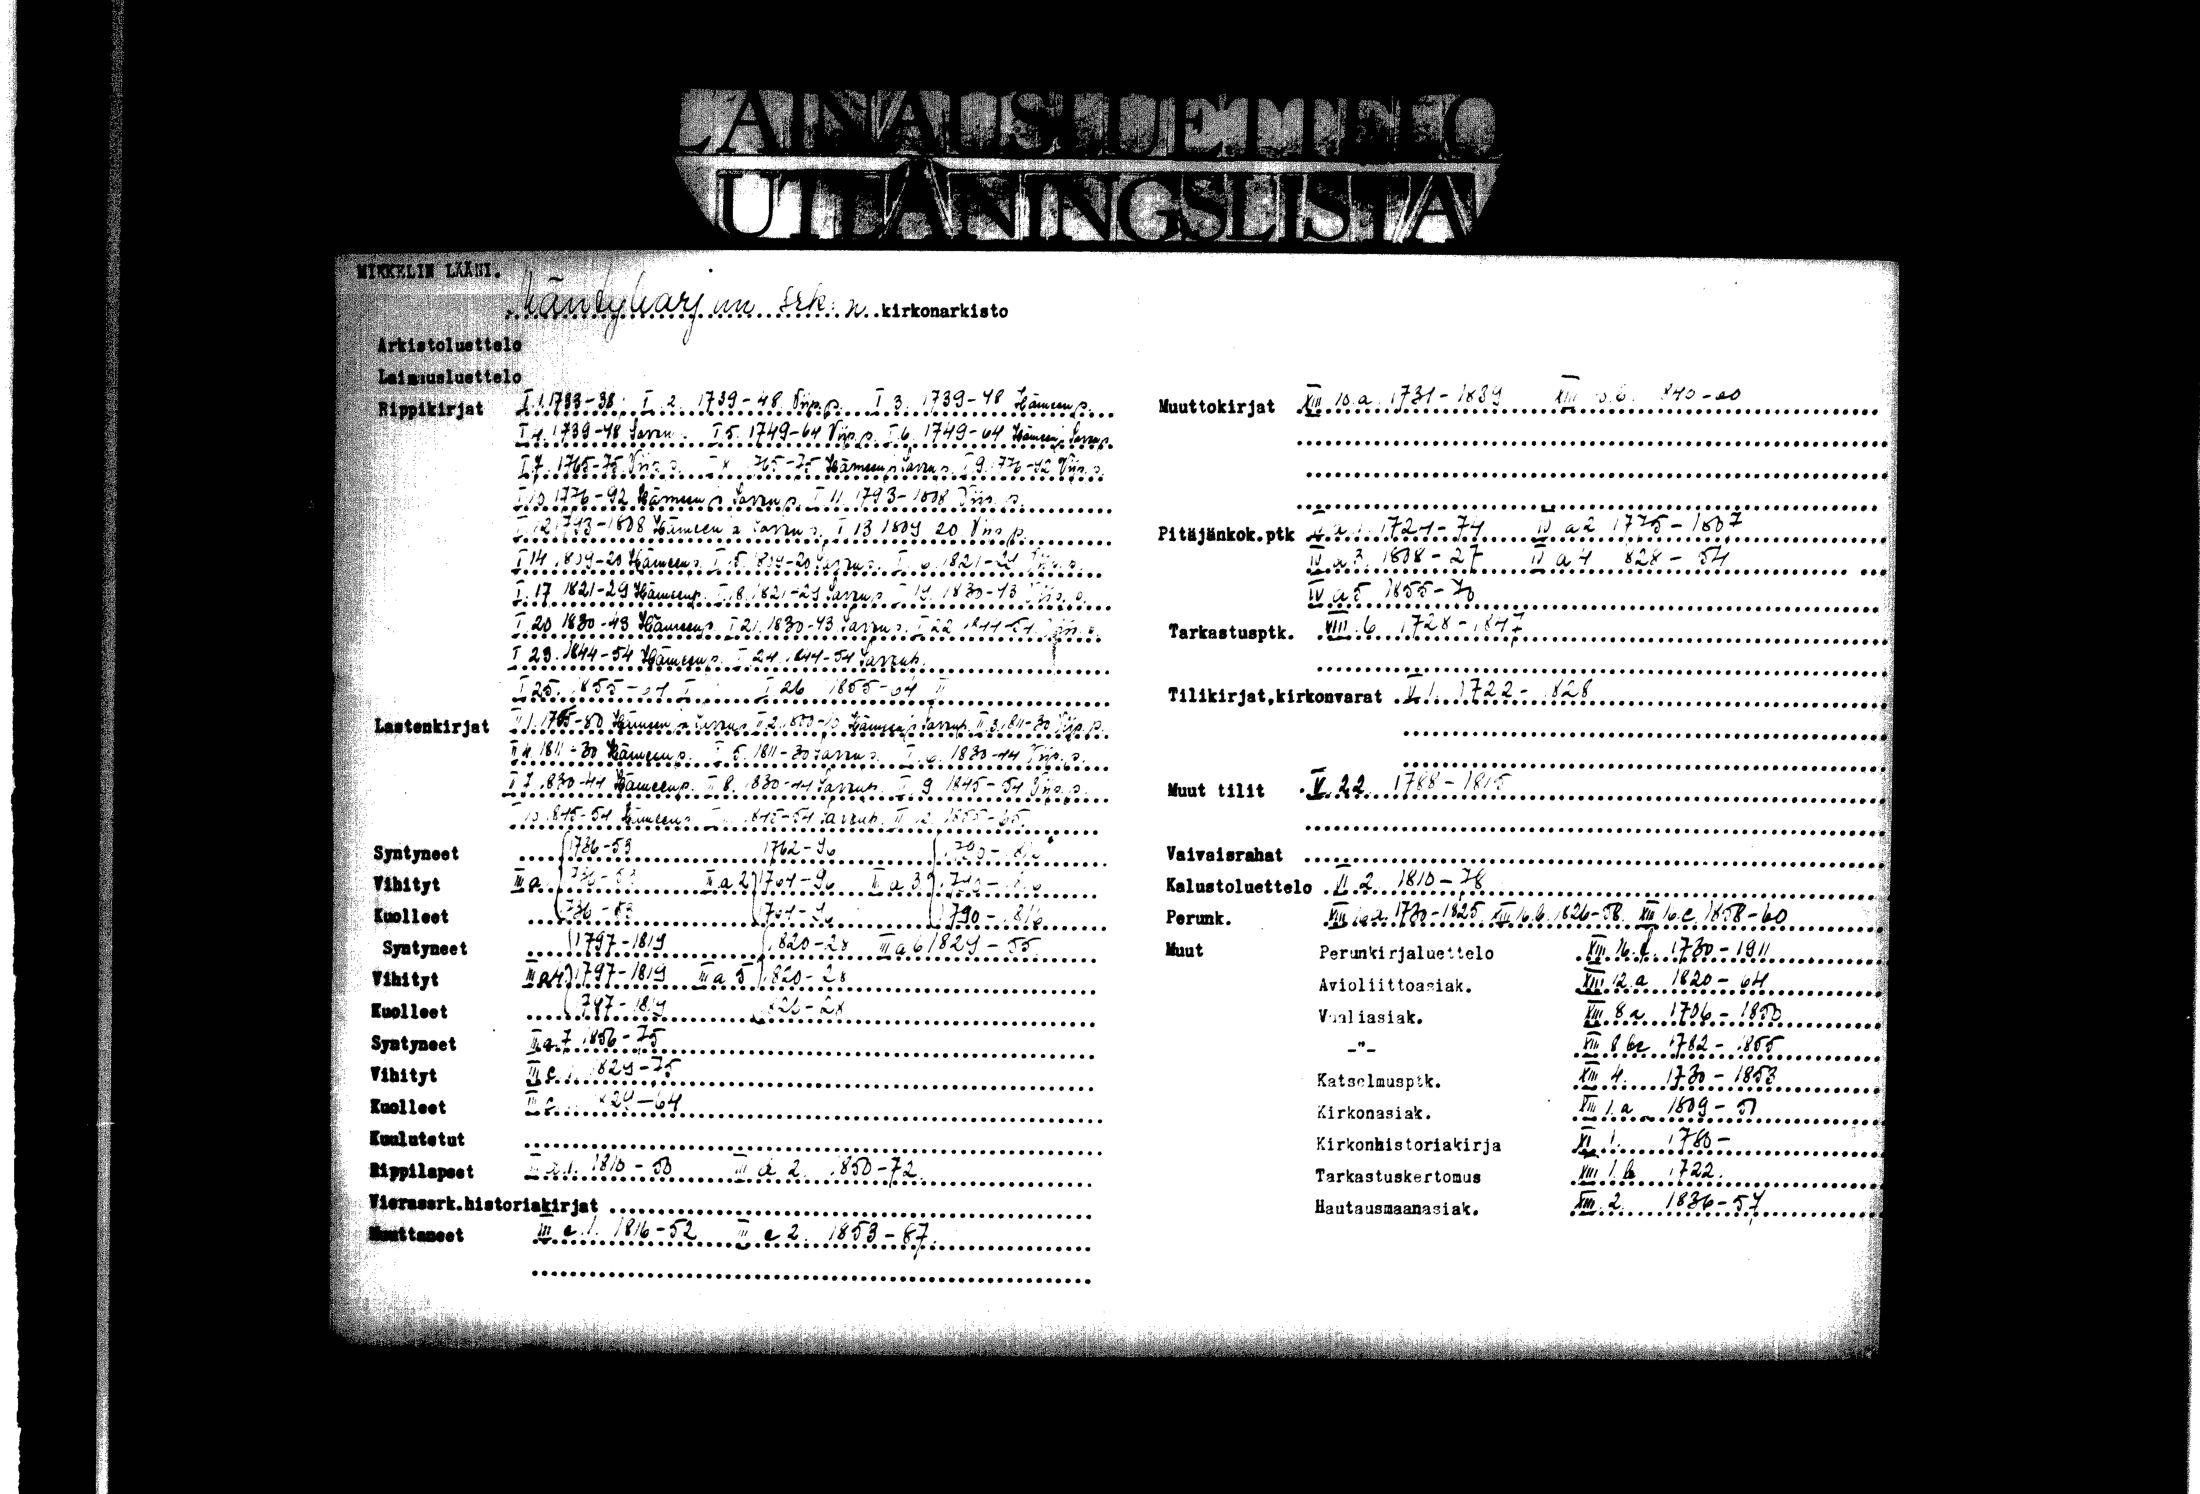 LAINAUSLUETTELO
UTLÅNINGSLISTA
MIKKELIN LÄÄNI.
Mäntyharjun srk:n kirkonarkisto
Arkistoluettelo
Lainausluettelo
Rippikirjat I 1. 1733-38. I 2. 1739-48 Viip.p. I 3. 1739-48 Hämeenp.
I 4. 1739-48 Savon. I 5. 1749-64 Viip.p. I 6. 1749-64 Hämeen, Savon p.
I 7. 1765-75 Viip.p. I 8. 1765-75 Hämeen ja Savon p. I 9. 1776-92 Viip.p.
I 10 1776-92 Hämeen ja Savon p. I 11. 1793-1808 Viip.p.
I 12 1793-1808 Hämeen ja Savon p. I 13 1809-20 Viip.p.
I 14 1809-20 Hämeenp. I 15. 1809-20 Savonp. I 16. 1821-29 Viip.p.
I 17 1821-29 Hämeenp. I 18. 1821-29 Savonp. I 19. 1830-43 Viip.p.
I 20 1830-43 Hämeenp. I 21. 1830-43 Savonp. I 22 1844-54 Viip.p.
I 23. 1844-54 Hämeenp. I 24. 1844-54 Savonp.
I 25. 1855-64 I I 26 1855-64 II
Lastenkirjat II 1. 1785-80 Hämeen ja Savonp. II 2. 1800-10 Hämeen ja Savonp. II 3. 1811-30 Viip.p.
II 4. 1811-30 Hämeenp. II 5. 1811-30 Savonp. II 6. 1830-44 Viip.p.
II 7. 1830-44 Hämeenp. II 8. 1830-44 Savonp. II 9 1845-54 Viip.p.
II 10. 1845-54 Hämeenp. II 11. 1845-54 Savonp. II 12. 1855-65.
Syntyneet 1736-53 1762-96 1790-1816
Vihityt III a 1 1736-53 III a 2 1764-96 III a 3 1790-1816
Kuolleet 1736-53 1764-96 1790-1816
Syntyneet 1797-1819 1820-28 III a 6 1829-55
Vihityt III a 4 1797-1819 III a 5 1820-28
Kuolleet 1797-1819 1820-28
Syntyneet III a 7 1856-75
Vihityt III c 1. 1829-75
Kuolleet 1829-64
Kuulutetut
Rippilapset 1. 1810-50 III d 2. 1850-72
Vierassrk.historiakirjat
Muuttaneet III e 1. 1816-52 III e 2. 1853-87.
Muuttokirjat XIII 10.a. 1731-1839 XIII 10.b. 1840-60
Pitäjänkok.ptk IV a 1. 1724-74 IV a 2 1775-1807
IV a 3. 1808-27 IV a 4 1828-54
IV a 5 1855-70
Tarkastusptk. VIII 6 1728-1847
Tilikirjat,kirkonvarat V 1. 1722-1828
Muut tilit V 22 1788-1815
Vaivaisrahat
Kalustoluettelo VI 2. 1810-78
Perunk. XIII 16.a. 1730-1825. XIII 16.b. 1826-58. XIII 16.c. 1858-60
Muut Perunkirjaluettelo XIII 16.d. 1730-1911
Avioliittoasiak. XIII 12.a 1820-64
Vaaliasiak. XIII 8 a 1706-1850
-"- XIII 8 bc 1782-1855
Katselmusptk. XIII 4. 1730-1853
Kirkonasiak. XIII 1.a 1809-51
Kirkonhistoriakirja XI 1. 1780-
Tarkastuskertomus XIII 1.b 1722.
Hautausmaanasiak. XIII 2. 1836-57